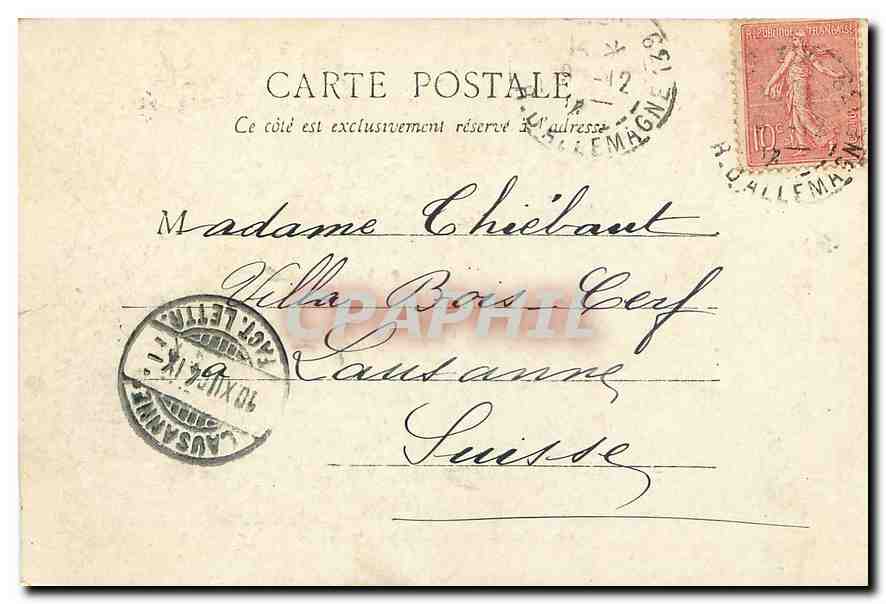 REPUBLIQUE FRANÇAISE
10c
CARTE POSTALE
Ce côté est exclusivement réservé à l'adresse
139
12
R. D'ALLEMAGNE
R. D'ALLEMAGNE
Madame Thiébaut
Villa Bois-Cerf
CPAPHIL
a Lausanne
Suisse
FACT. LETTR.
10 XII 04 IX
LAUSANNE